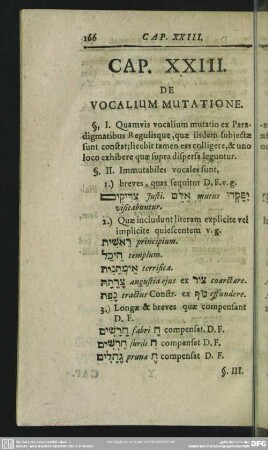 166 CAP. XXIII.
CAP. XXIII.
DE
VOCALIUM MUTATIONE.
§. I. Quamvis vocalium mutatio ex Para-
digmatibus Regulisque, quæ iisdem subjectæ
sunt constat; licebit tamen eas colligere, & uno
loco exhibere quæ supra dispersa leguntur.
§. II. Immutabiles vocales sunt,
1.) breves, quas sequitur D. F. v. g.
Justi. mutus
visitabuntur.
2.) Quæ includunt literam explicite vel
implicite quiescentem v. g.
רֵאשִׁית principium.
הֵיכָל templum.
terrifica.
angustia ejus ex צור coarctare.
tractus Constr. ex effundere.
3.) Longæ & breves quæ compensant
D. F.
חָרָשִׁים fabri ח compensat D. F.
חֵרְשִׁים surdi ח compensat D. F.
גֶּחָלִים pruna ח compensat D. F.
§. III.